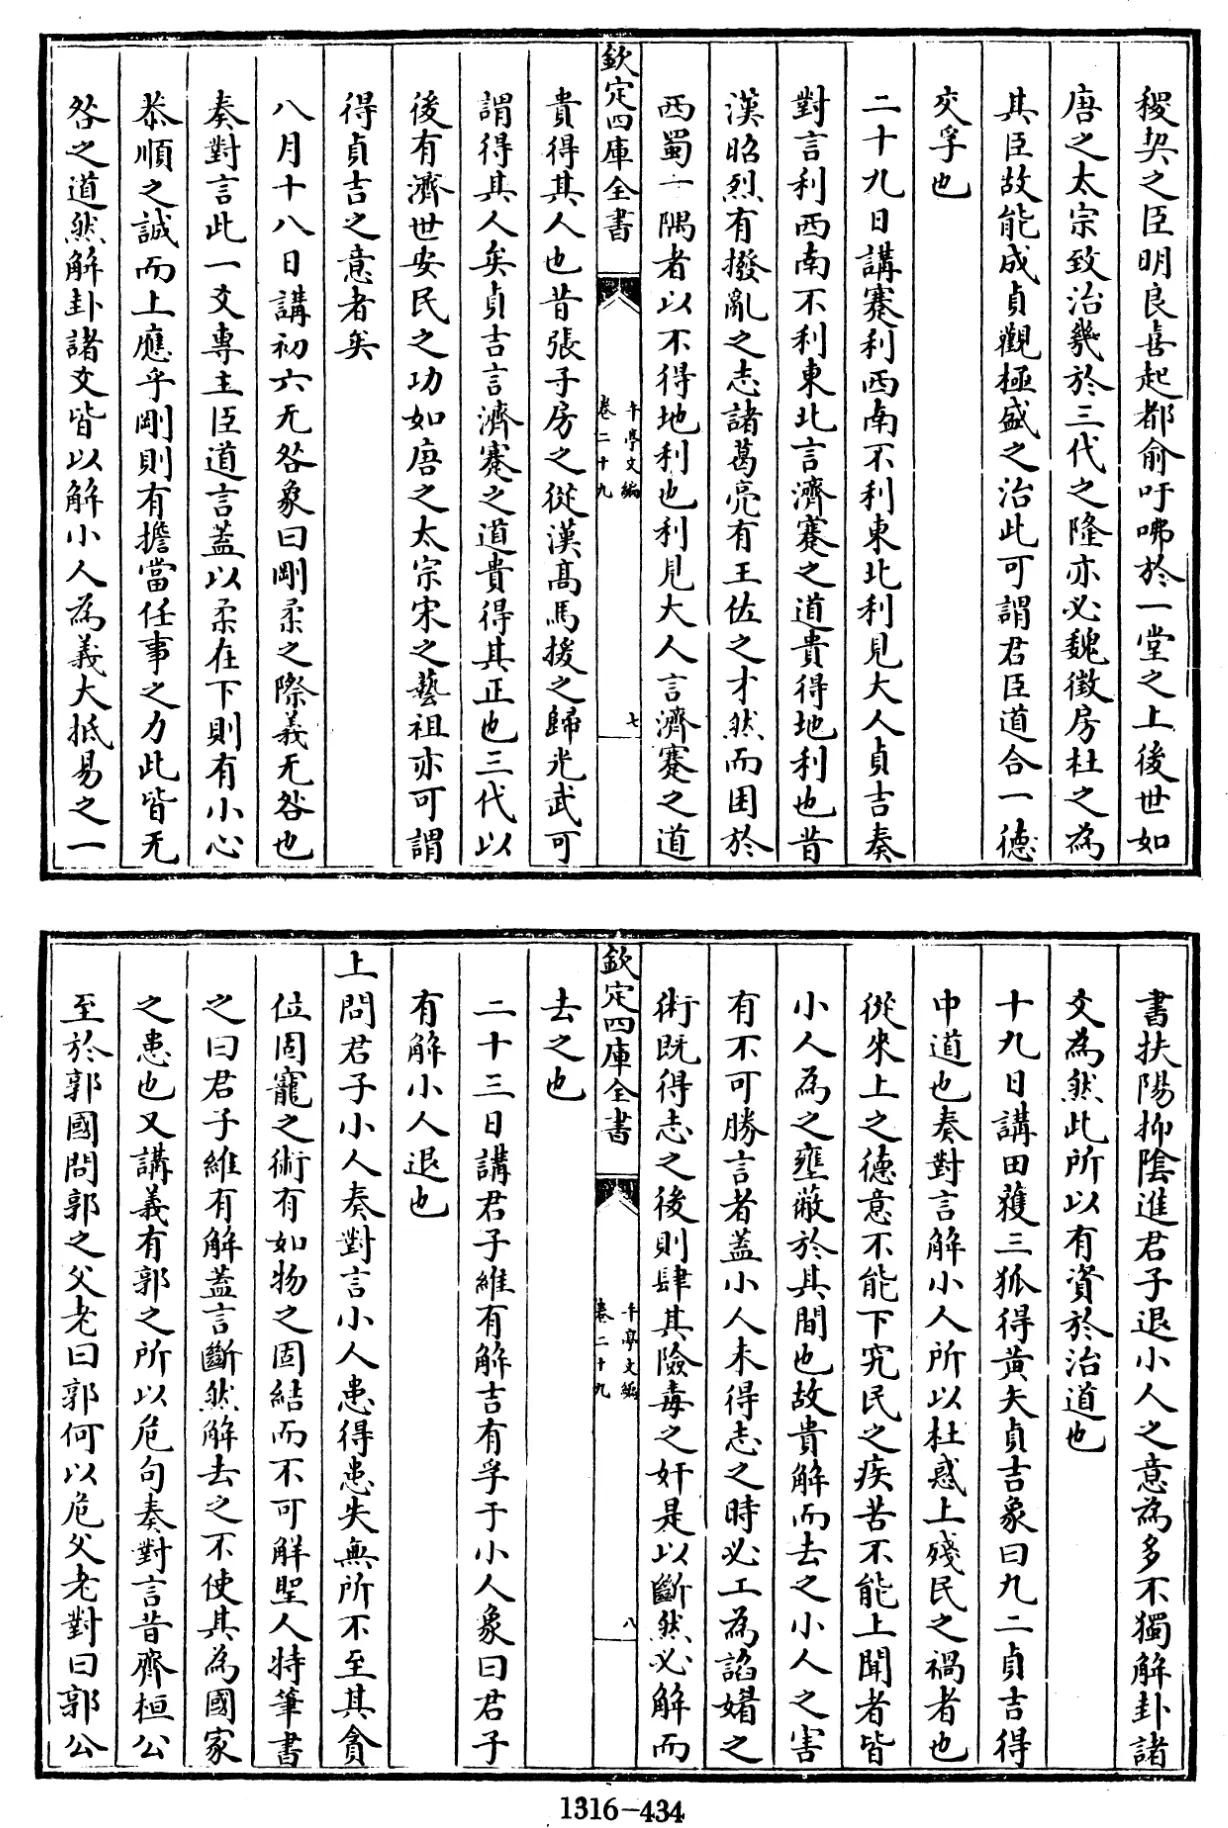 稷契之臣明良喜起都俞吁咈於一堂之上後世如
唐之太宗致治幾於三代之隆亦必魏徵房杜之為
其臣故能成貞觀極盛之治此可謂君臣道合一德
交孚也
二十九日講蹇利西南不利東北利見大人貞吉奏
對言利西南不利東北言濟蹇之道貴得地利也昔
漢昭烈有撥亂之志諸葛亮有王佐之才然而困於
西蜀一隅者以不得地利也利見大人言濟蹇之道
欽定四庫全書
午亭文編
卷二十九
七
貴得其人也昔張子房之從漢髙馬援之歸光武可
謂得其人矣貞吉言濟蹇之道貴得其正也三代以
後有濟世安民之功如唐之太宗宋之藝祖亦可謂
得貞吉之意者矣
八月十八日講初六无咎象曰剛柔之際義无咎也
奏對言此一爻專主臣道言蓋以柔在下則有小心
恭順之誠而上應乎剛則有擔當任事之力此皆无
咎之道然解卦諸爻皆以解小人為義大抵易之一
書扶陽抑陰進君子退小人之意為多不獨解卦諸
爻為然此所以有資於治道也
十九日講田獲三狐得黃矢貞吉象曰九二貞吉得
中道也奏對言解小人所以杜惑上殘民之禍者也
從來上之德意不能下究民之疾苦不能上聞者皆
小人為之壅蔽於其間也故貴解而去之小人之害
有不可勝言者蓋小人未得志之時必工為諂媚之
術既得志之後則肆其險毒之奸是以斷然必解而
欽定四庫全書
午亭文編
卷二十九
八
去之也
二十三日講君子維有解吉有孚于小人象曰君子
有解小人退也
上問君子小人奏對言小人患得患失無所不至其貪
位固寵之術有如物之固結而不可解聖人特筆書
之曰君子維有解蓋言斷然解去之不使其為國家
之患也又講義有郭之所以危句奏對言昔齊桓公
至於郭國問郭之父老曰郭何以危父老對曰郭公
1316-434